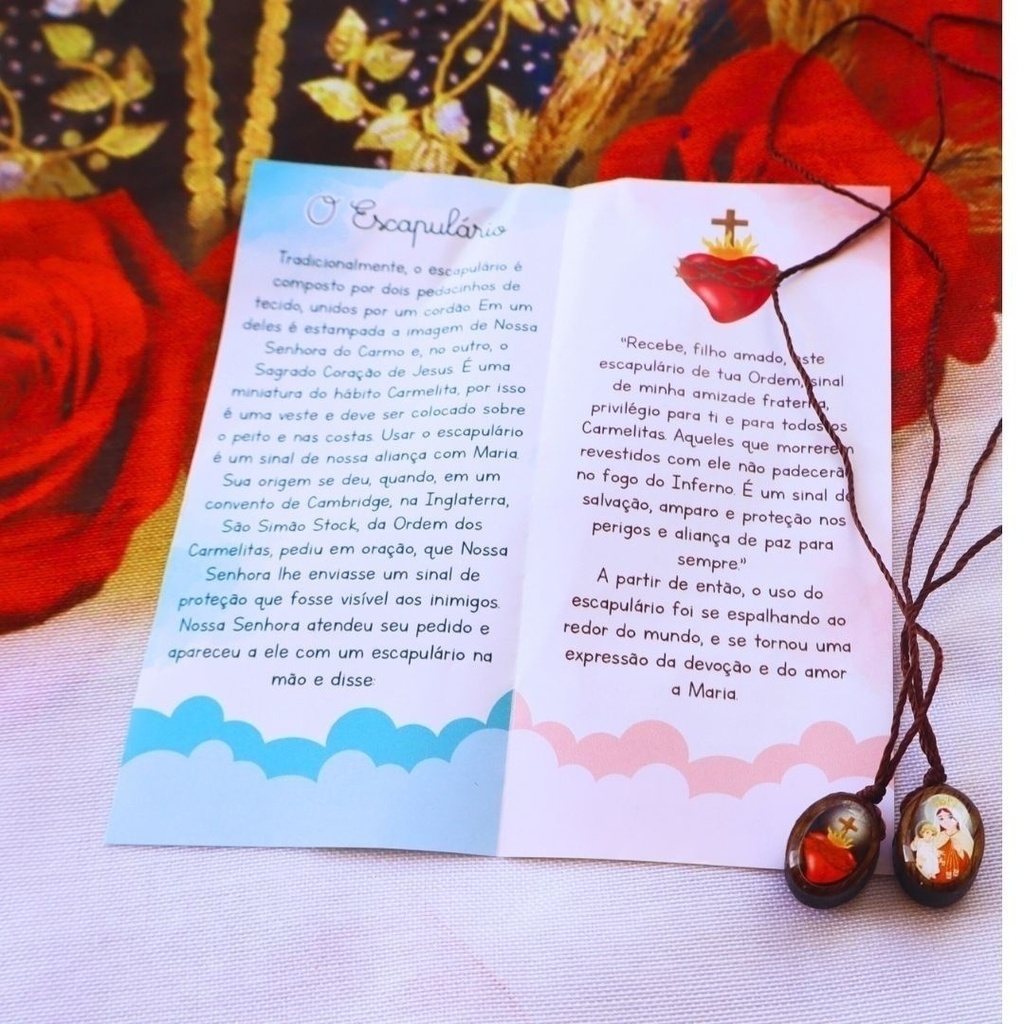 O Escapulário
Tradicionalmente, o escapulário é
composto por dois pedacinhos de
tecido, unidos por um cordão Em um
deles é estampada a imagem de Nossa
Senhora do Carmo e, no outro, o
Sagrado Coração de Jesus. É uma
miniatura do hábito Carmelita, por isso
é uma veste e deve ser colocado sobre
o peito e nas costas. Usar o escapulário
é um sinal de nossa aliança com Maria.
Sua origem se deu, quando, em um
convento de Cambridge, na Inglaterra,
São Simão Stock, da Ordem dos
Carmelitas, pediu em oração, que Nossa
Senhora lhe enviasse um sinal de
proteção que fosse visível aos inimigos.
Nossa Senhora atendeu seu pedido e
apareceu a ele com um escapulário na
mão e disse:
"Recebe, filho amado, este
escapulário de tua Ordem, sinal
de minha amizade fraterna,
privilégio para ti e para todos os
Carmelitas. Aqueles que morrerem
revestidos com ele não padecerão
no fogo do Inferno. É um sinal de
salvação, amparo e proteção nos
perigos e aliança de paz para
sempre."
A partir de então, o uso do
escapulário foi se espalhando ao
redor do mundo, e se tornou uma
expressão da devoção e do amor
a Maria.